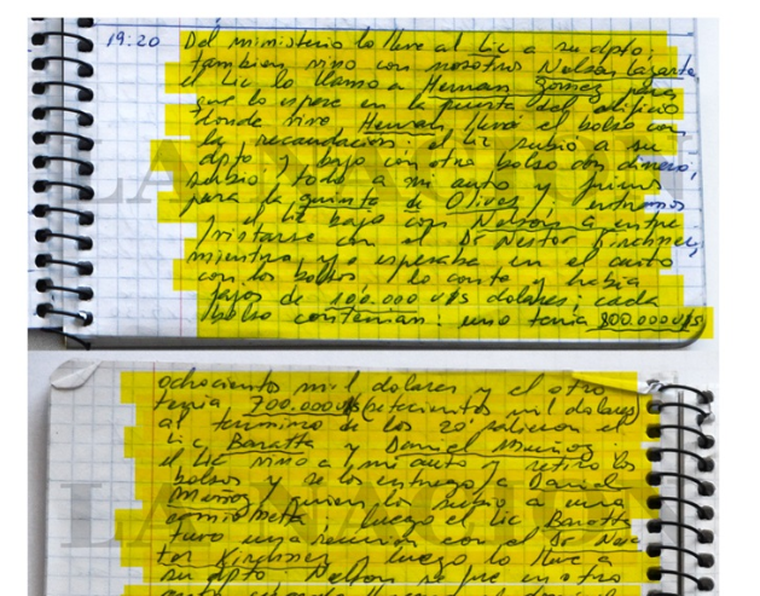 19:20 Del ministerio lo lleve al Lic a su dpto;
tambien vino con nosotros Nelson Lazarte,
el Lic lo llamo a Hernan Gomez para
que lo espere en la puerta del edificio
donde vive Hernan llevó el bolso con
la recaudación: el Lic subio a su
dpto y bajo con otro bolso con dinero,
subio todo a mi auto y fuimos
para la quinta de Olivos; entramos
y el Lic bajo con Nelson a entre
vistarse con el Dr Nestor Kirchner,
mientras yo esperaba en el auto
con los bolsos, lo conte y habia
fajos de 100.000 U$S dolares; cada
bolso contenian: uno tenia 800.000U$S
LA NACION
ochocientos mil dolares y el otro
tenia 700.000U$S (setecientos mil dolares)
al termino de los 20' salieron el
Lic Baratta y Daniel Muñoz;
el Lic vino a mi auto y retiro los
bolsos y se los entrego a Daniel
Muñoz, quien los subio a una
camioneta; luego el Lic Baratta
tuvo una reunion con el Dr Nes
tor Kirchner y luego lo lleve a
su dpto Nelson se fue en otro
LA NACION